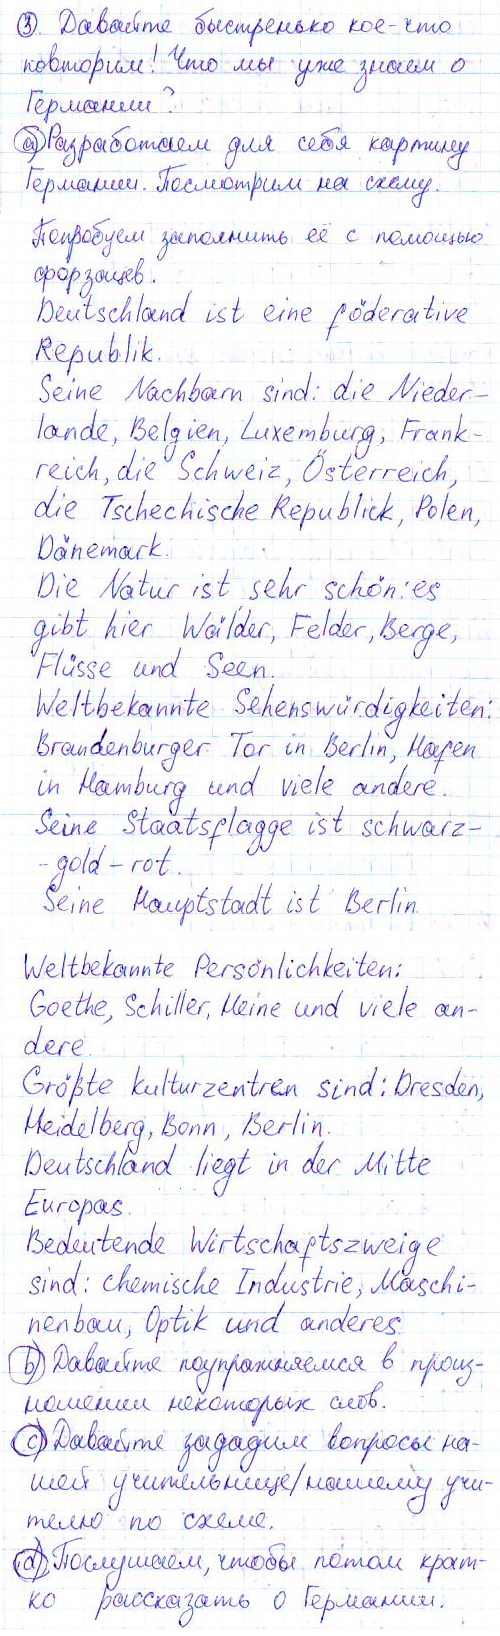 ③ Давайте быстренько кое-что
повторим! Что мы уже знаем о
Германии?
ⓐ Разработаем для себя картину
Германии. Посмотрим на схему.
Попробуем заполнить её с помощью
форзацев.
Deutschland ist eine föderative
Republik.
Seine Nachbarn sind: die Nieder-
lande, Belgien, Luxemburg, Frank-
reich, die Schweiz, Österreich,
die Tschechische Republick, Polen,
Dänemark.
Die Natur ist sehr schön: es
gibt hier Wälder, Felder, Berge,
Flüsse und Seen.
Weltbekannte Sehenswürdigkeiten:
Brandenburger Tor in Berlin, Hafen
in Hamburg und viele andere.
Seine Staatsflagge ist schwarz-
-gold-rot.
Seine Hauptstadt ist Berlin
Weltbekannte Persönlichkeiten:
Goethe, Schiller, Heine und viele an-
dere.
Größte Kulturzentren sind: Dresden,
Heidelberg, Bonn, Berlin.
Deutschland liegt in der Mitte
Europas.
Bedeutende Wirtschaftszweige
sind: chemische Industrie, Maschi-
nenbau, Optik und anderes
ⓑ Давайте поупражняемся в произ-
ношении некоторых слов.
ⓒ Давайте зададим вопросы на-
шей учительнице/нашему учи-
телю по схеме.
ⓓ Послушаем, чтобы потом крат-
ко рассказать о Германии.